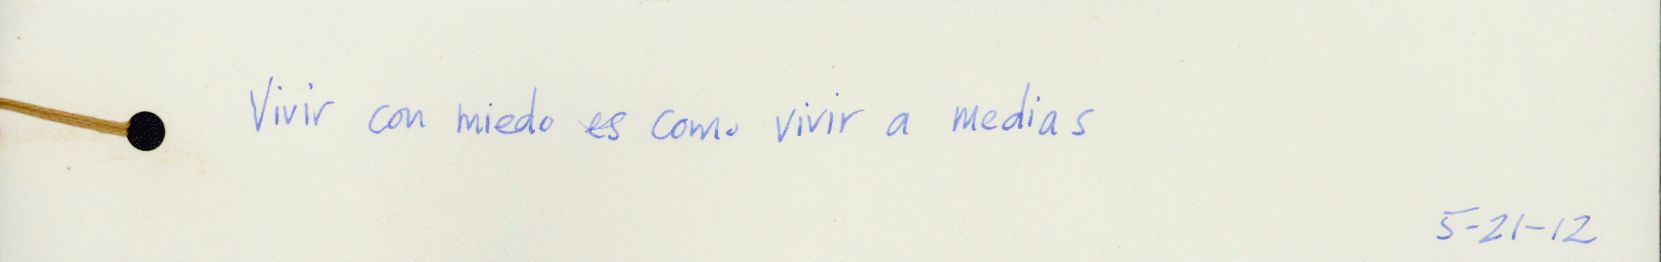 Vivir con miedo es como vivir a medias
5-21-12